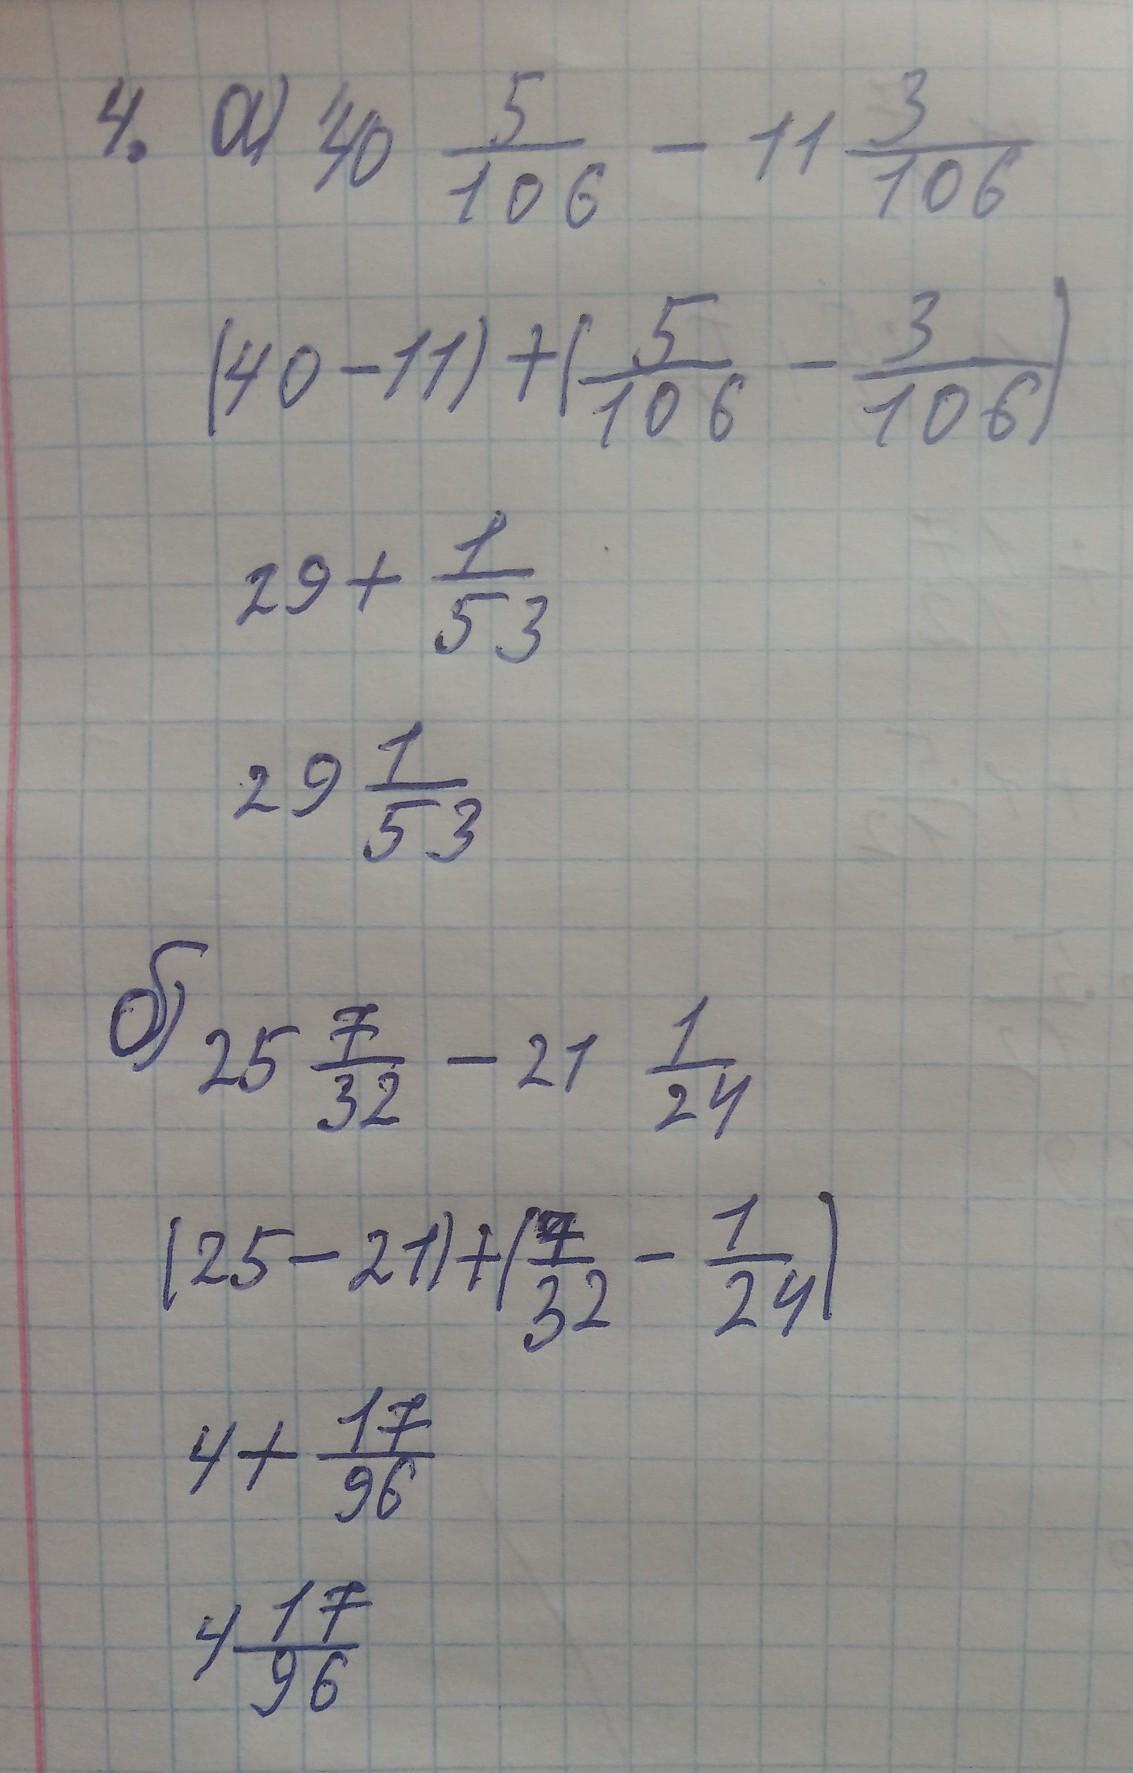 4. а) 40 5/106 - 11 3/106
(40-11)+(5/106 - 3/106)
29+ 1/53
29 1/53
б) 25 7/32 - 21 1/24
(25-21)+(7/32 - 1/24)
4+ 17/96
4 17/96